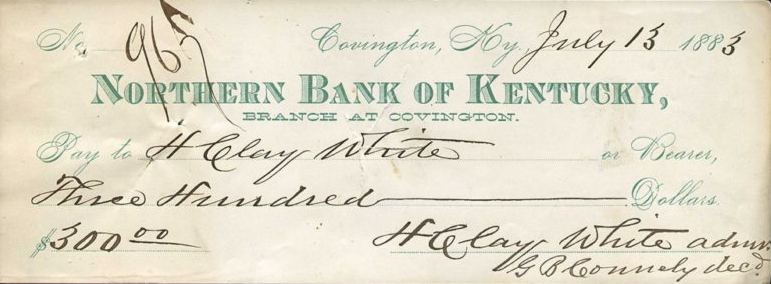 No. 965 Covington, Ky. July 13 1883
NORTHERN BANK OF KENTUCKY,
BRANCH AT COVINGTON.
Pay to H Clay White or Bearer,
Three Hundred Dollars.
$300.00
H Clay White admr.
G B Connely decd.